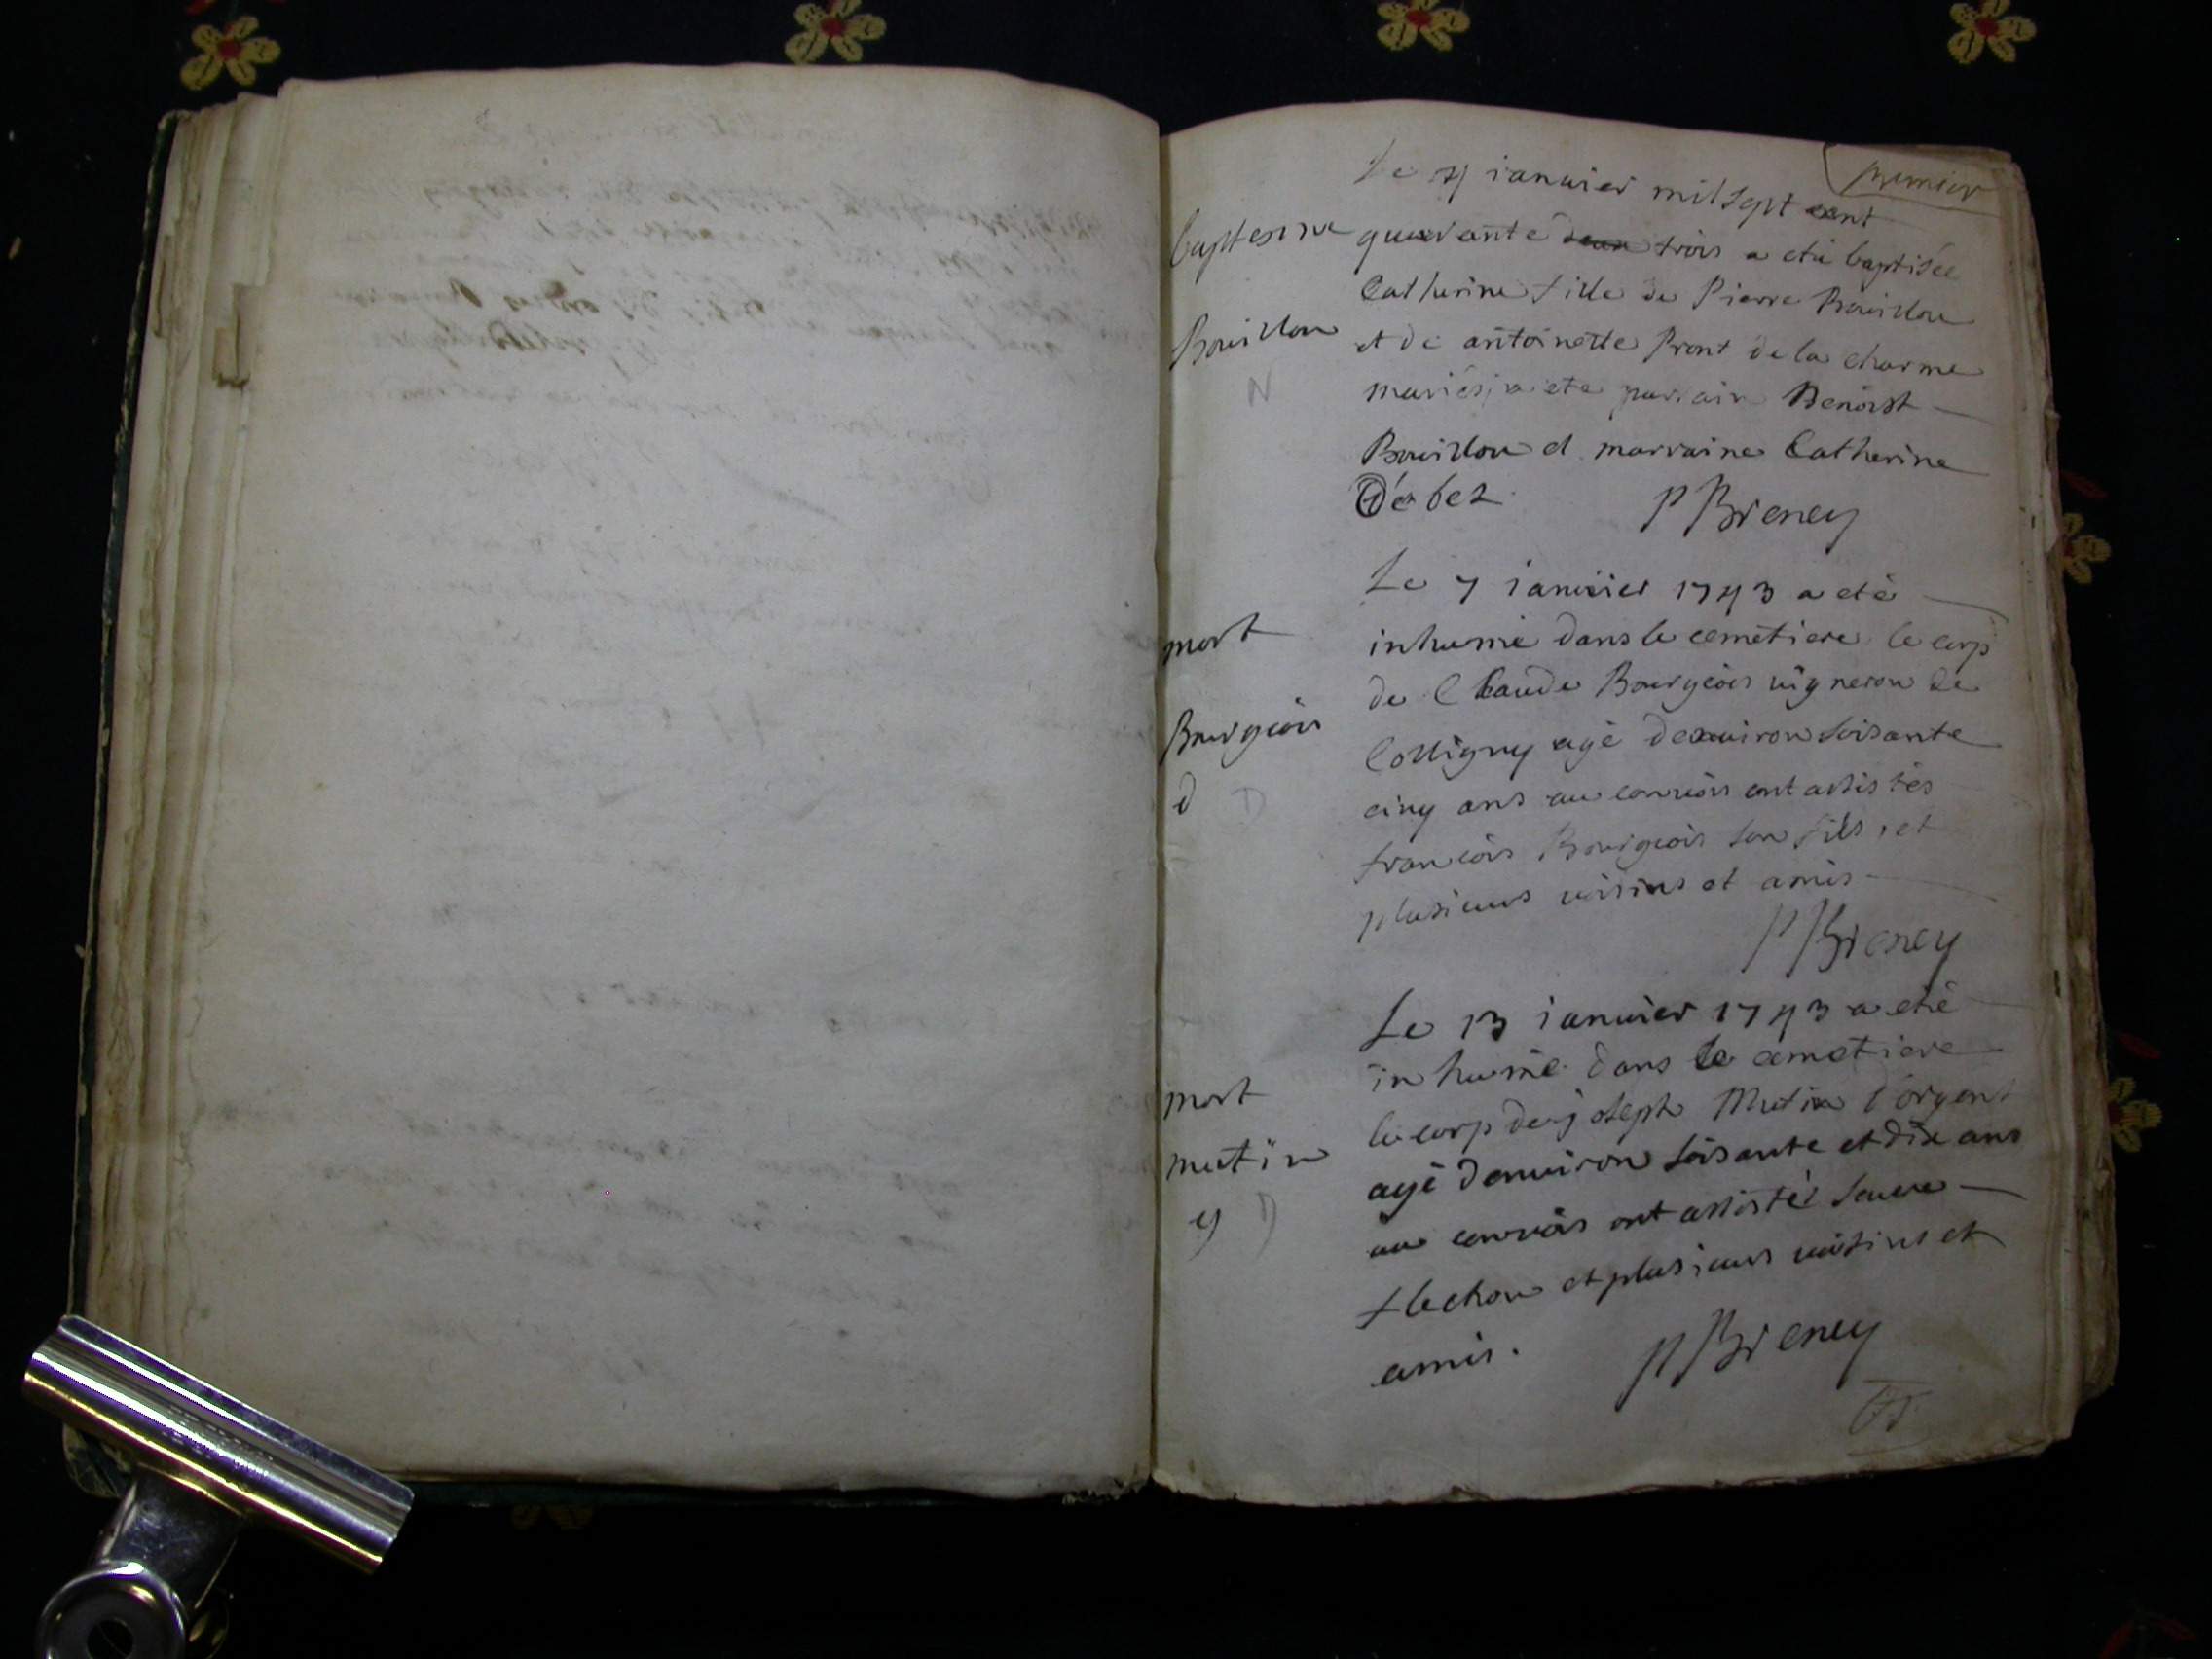 premier
Le 4 ianuier mil sept cent
baptesme quarante deux trois a eté baptisée
Catherine fille de Pierre Bouillon
Bouillon et de antoinette Pront de la charme
N
mariés, a ete parrain Benoist
Bouillon et marraine Catherine
Débez. P Breney
Le 7 ianuier 1743 a eté
mort inhumé dans le cemetiere le corp
de Claude Bourgeois uigneron de
Bourgeois Colligny agé denuiron soisante
d D cinq ans au conuois ont assistés
francois Bourgeois son fils, et
plusieurs uoisins et amis
P Breney
Le 13 ianuier 1743 a eté
inhumé dans le cemetiere
mort le corp de joseph Mutin d'orgent
mutin agé denuiron soisante et dix ans
y D au conuois ont assisté
flechon et plusieurs uoisins et
amis. P Breney